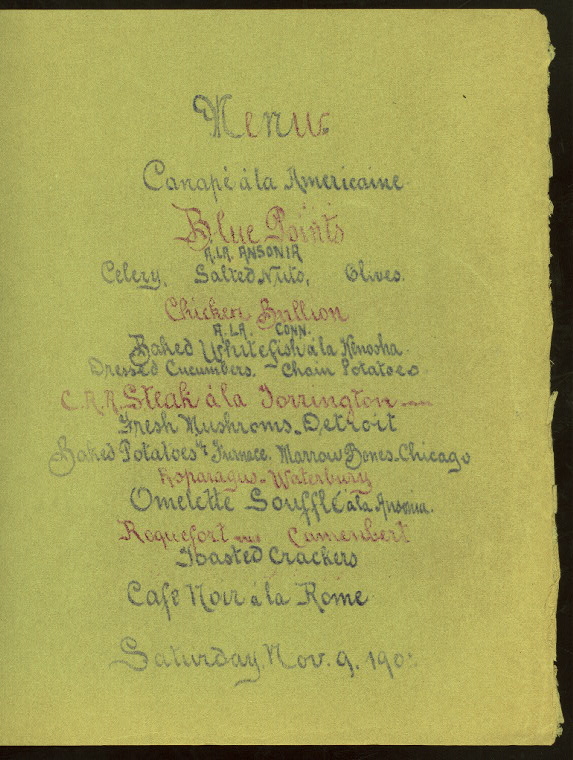 Menu
Canapé à la Americaine
Blue Points
A.LA. ANSONIA
Celery. Salted Nuts, Olives.
Chicken Bullion
A.LA. CONN.
Baked Whitefish à la Kenosha.
Dressed Cucumbers. Chain Potatoes
C.R.R. Steak à la Torrington
Fresh Mushroms-Detroit
Baked Potatoes Furnace. Marrow Bones-Chicago
Asparagus-Waterbury
Omelette Souffle à la Ansonia.
Roquefort Camenbert
Toasted Crackers
Cafe Noir à la Rome
Saturday. Nov. 9, 190